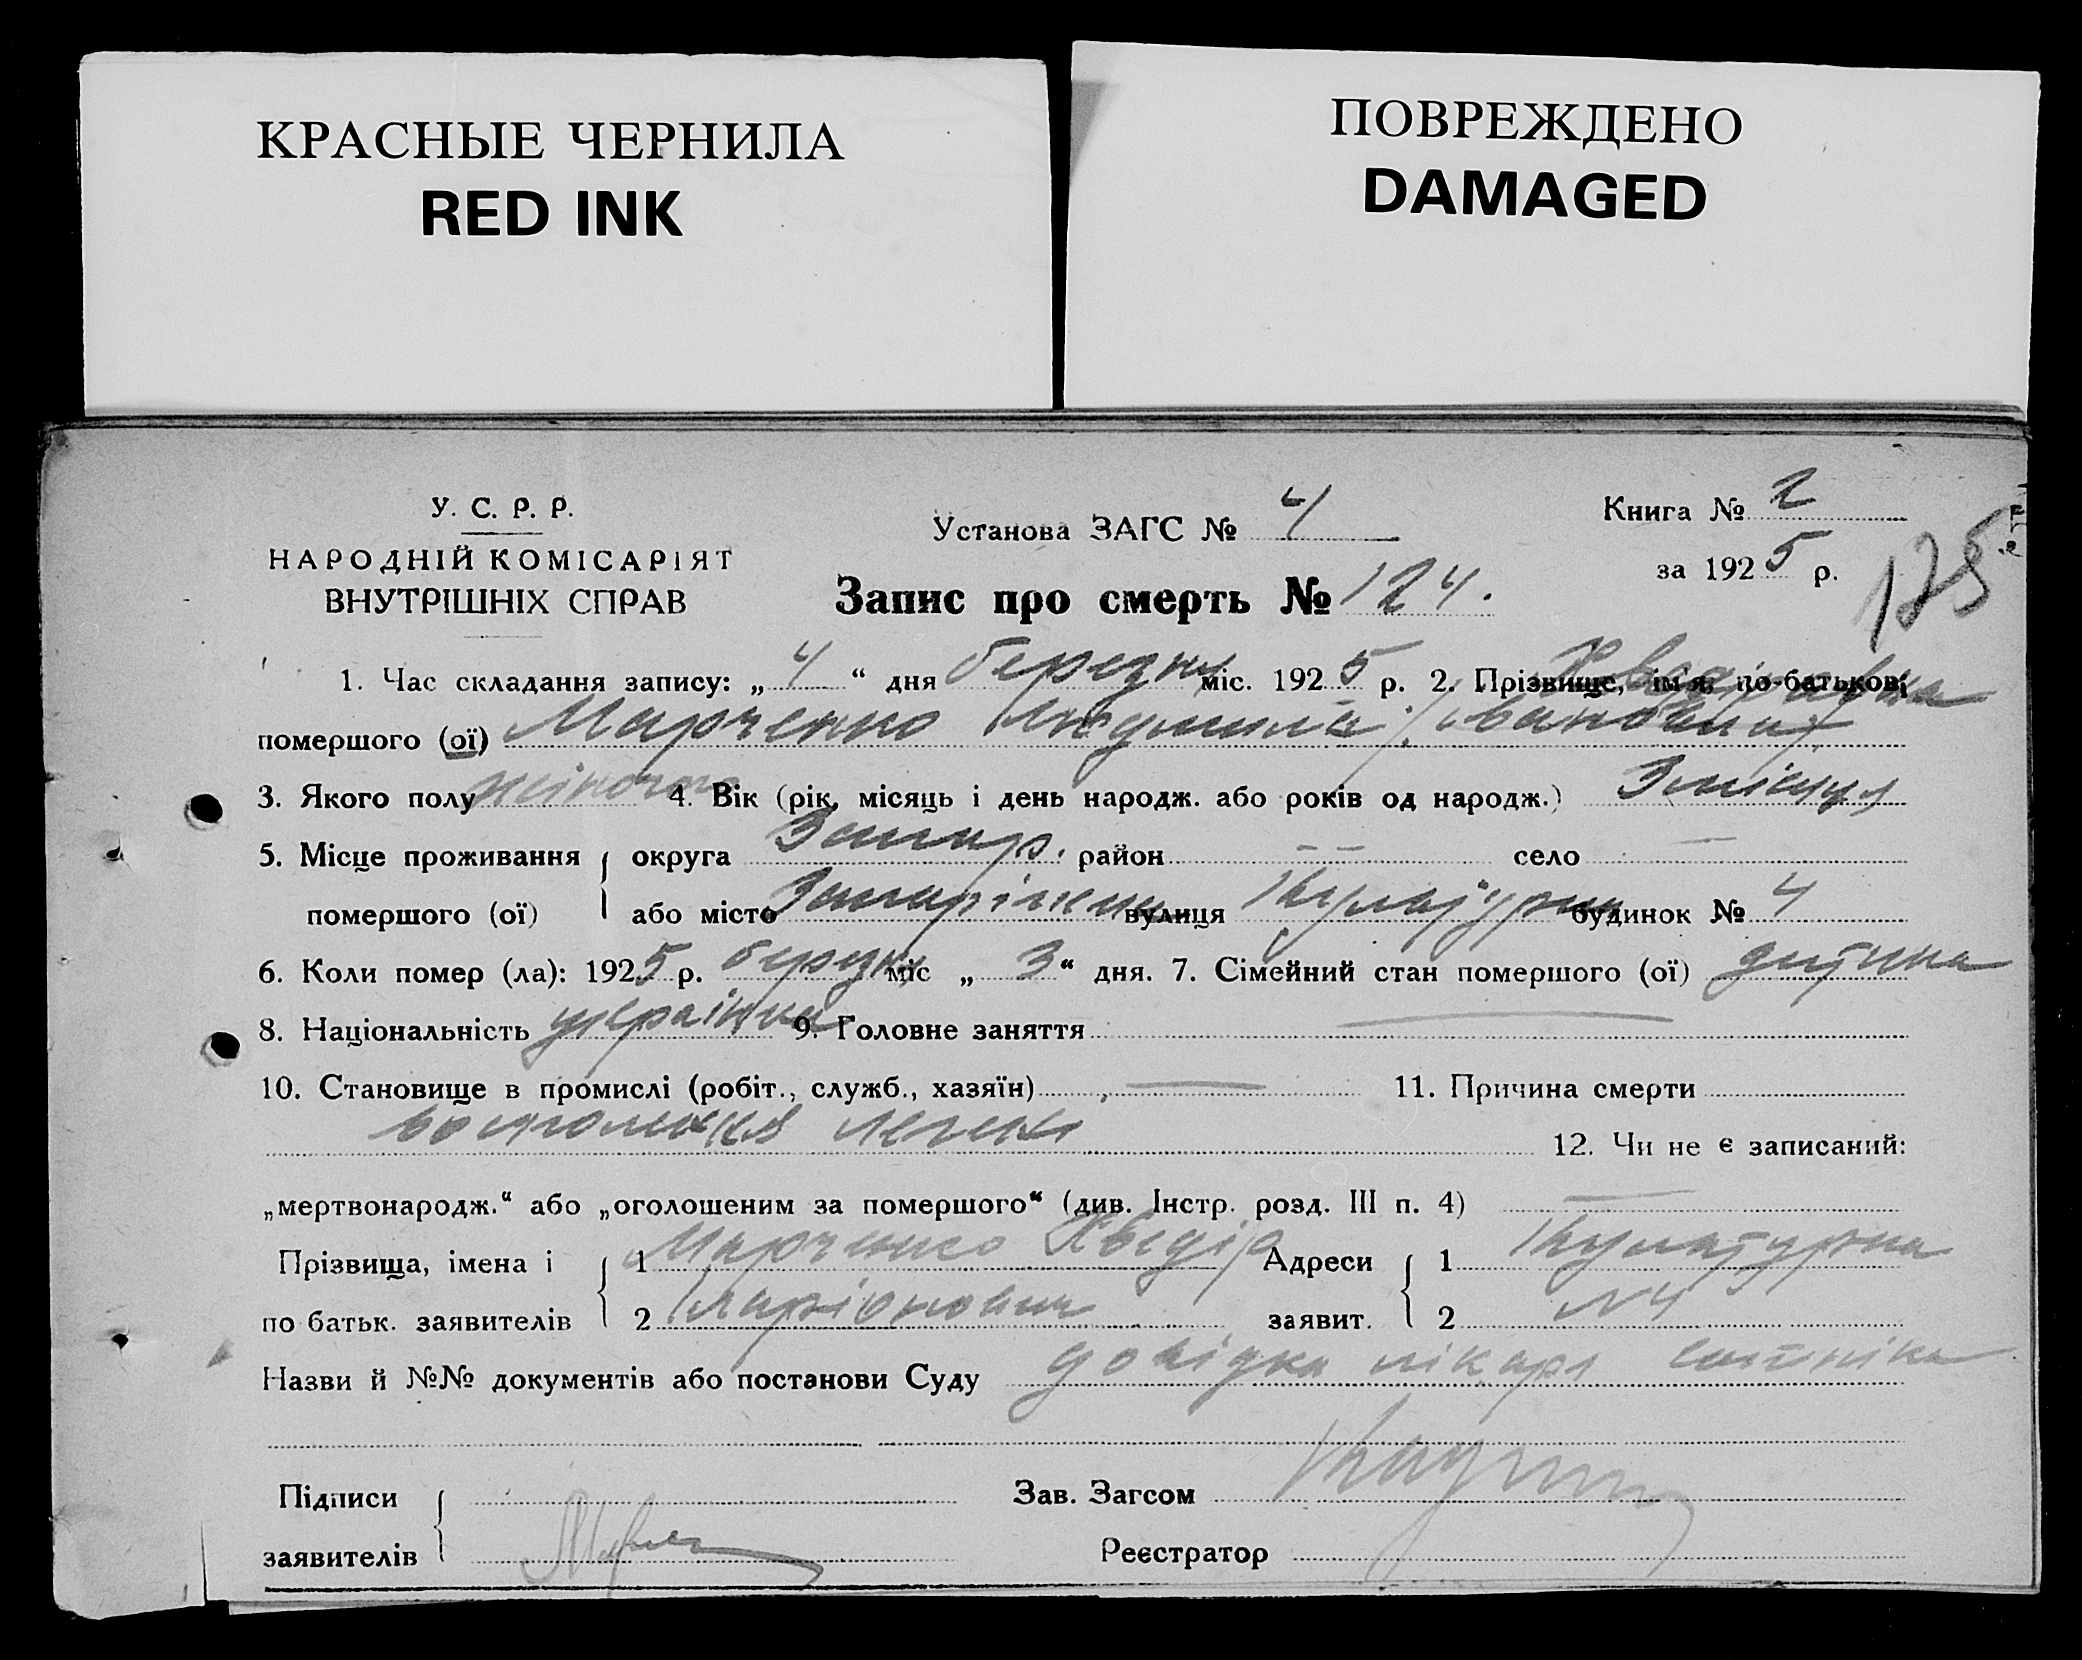 КРАСНЫЕ ЧЕРНИЛА
RED INK
ПОВРЕЖДЕНО
DAMAGED
У. С. Р. Р.
НАРОДНІЙ КОМІСАРІЯТ
ВНУТРІШНІХ СПРАВ
Установа ЗАГС № 4
Запис про смерть № 124.
Книга № 2
за 1925 р.
125
1. Час складання запису: „4“ дня березня міс. 1925 р. 2. Прізвище, ім'я, по-батькові
помершого (ої) Марченко Людмила (Івановна)
3. Якого полу жіночого 4. Вік (рік, місяць і день народж. або років од народж.) 3 місяця
5. Місце проживання округа Запор. район — — село —
помершого (ої) або місто Запоріжжя вулиця Культурна будинок № 4
6. Коли помер (ла): 1925 р. березня міс „3“ дня. 7. Сімейний стан помершого (ої) дитина
8. Національність українка 9. Головне заняття —
10. Становище в промислі (робіт., служб., хазяїн) — 11. Причина смерти
легких
12. Чи не є записаний:
„мертвонародж.“ або „оголошеним за помершого“ (див. Інстр. розд. III п. 4) —
Прізвища, імена і 1 Марченко Хведір Адреси 1 Культурна
по батьк. заявителів 2 Ларіонович заявит. 2 № 4
Назви й №№ документів або постанови Суду довідка лікаря
Підписи Зав. Загсом
заявителів Реєстратор